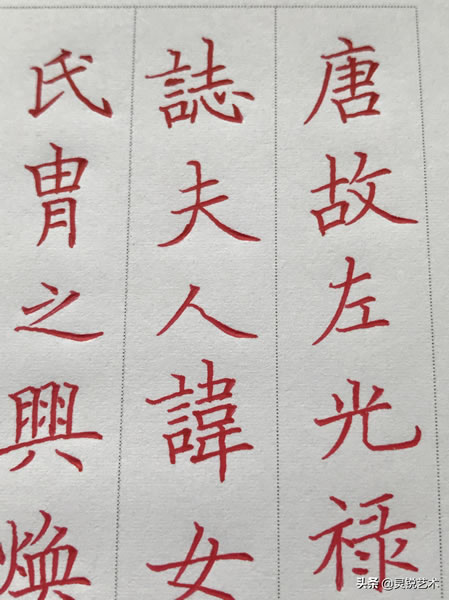 唐故左光禄
誌夫人諱女
氏胄之興煥
头条@灵锐艺术